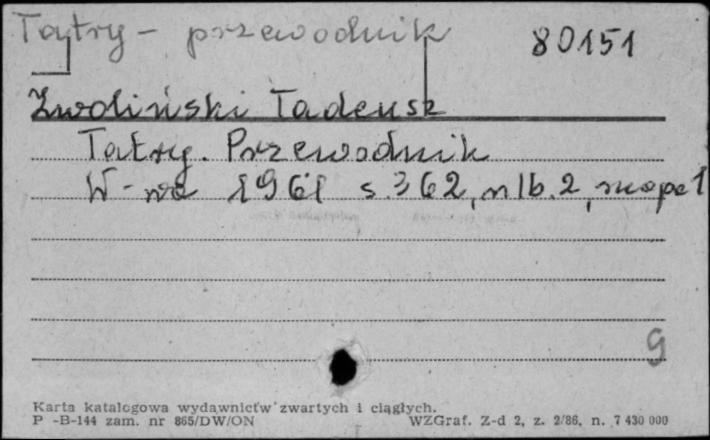 Tatry - przewodnik 80151
Zwoliński Tadeusz
Tatry. Przewodnik
W-wa 1961 s. 362, nlb. 2, mapa 1
9
Karta katalogowa wydawnictw zwartych i ciągłych.
P -B-144 zam. nr 865/DW/ON WZGraf. Z-d 2, z. 2/86, n. 7 430 000